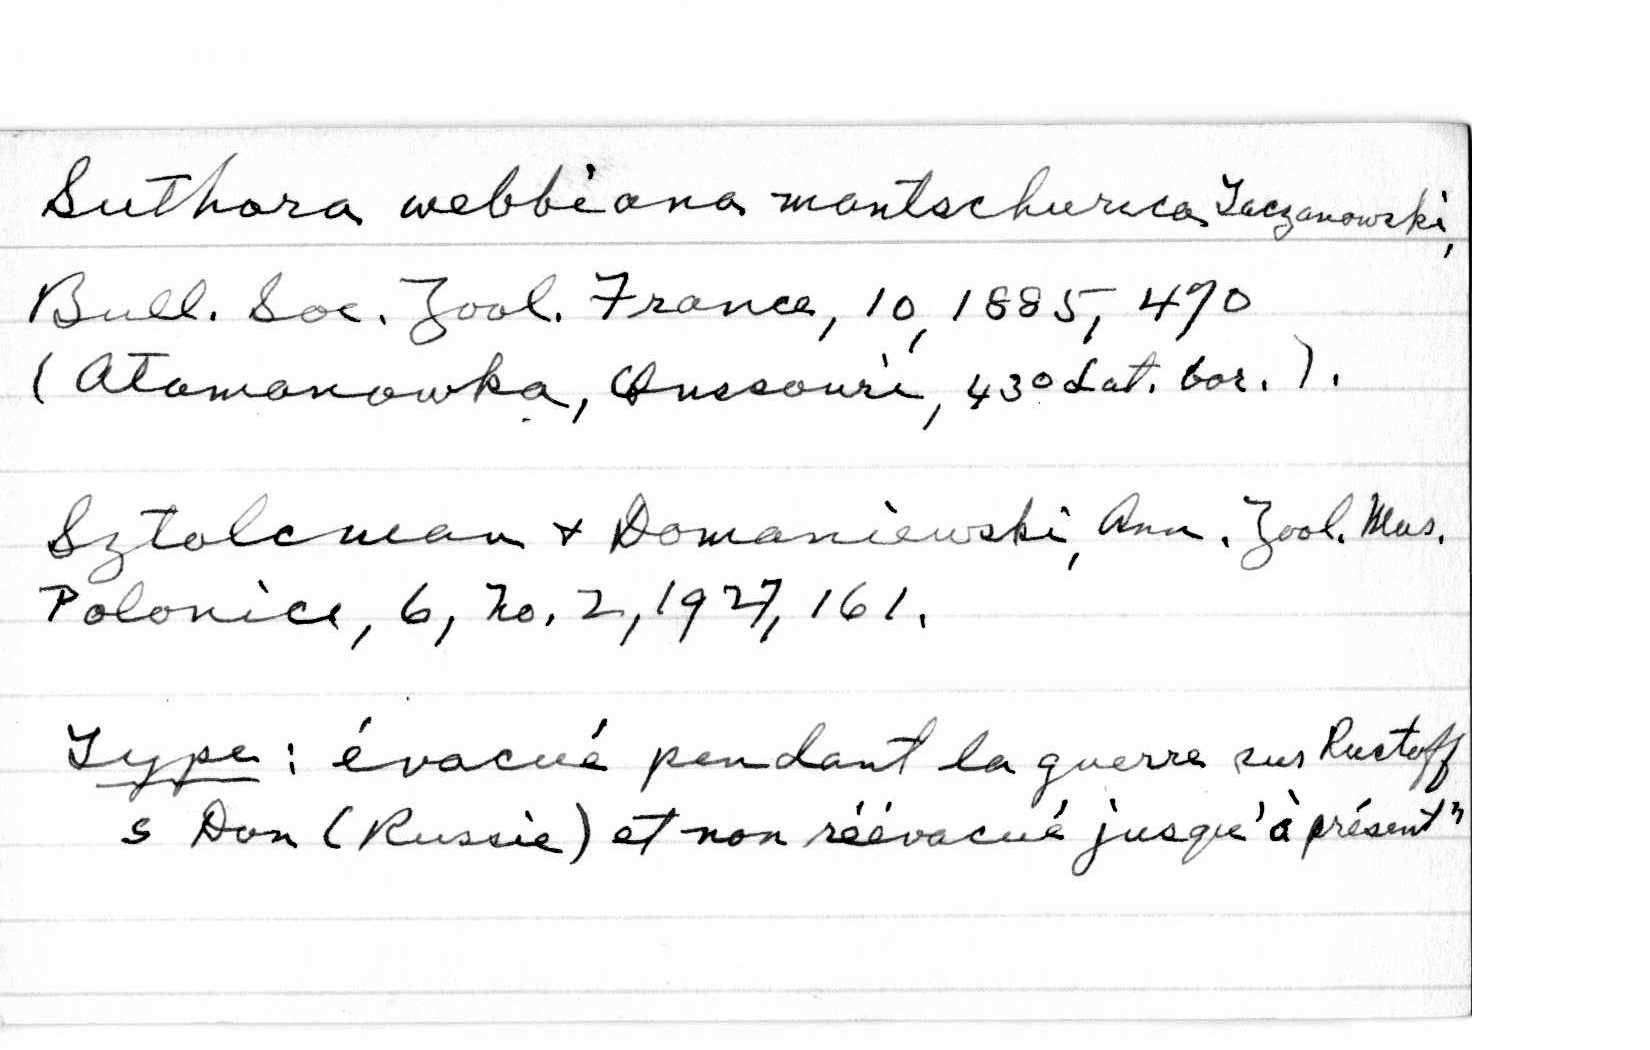 Suthora webbiana mantschurica Taczanowski,
Bull. Soc. Zool. France, 10, 1885, 470
(Atamanowka, Oussouri, 43° Lat. bor.).
Sztolcman + Domaniewski, Ann. Zool. Mus.
Polonici, 6, No. 2, 1927, 161.
Type: évacué pendant la guerre sur Rostoff
s Don (Russie) et non réévacué jusqu'à présent"